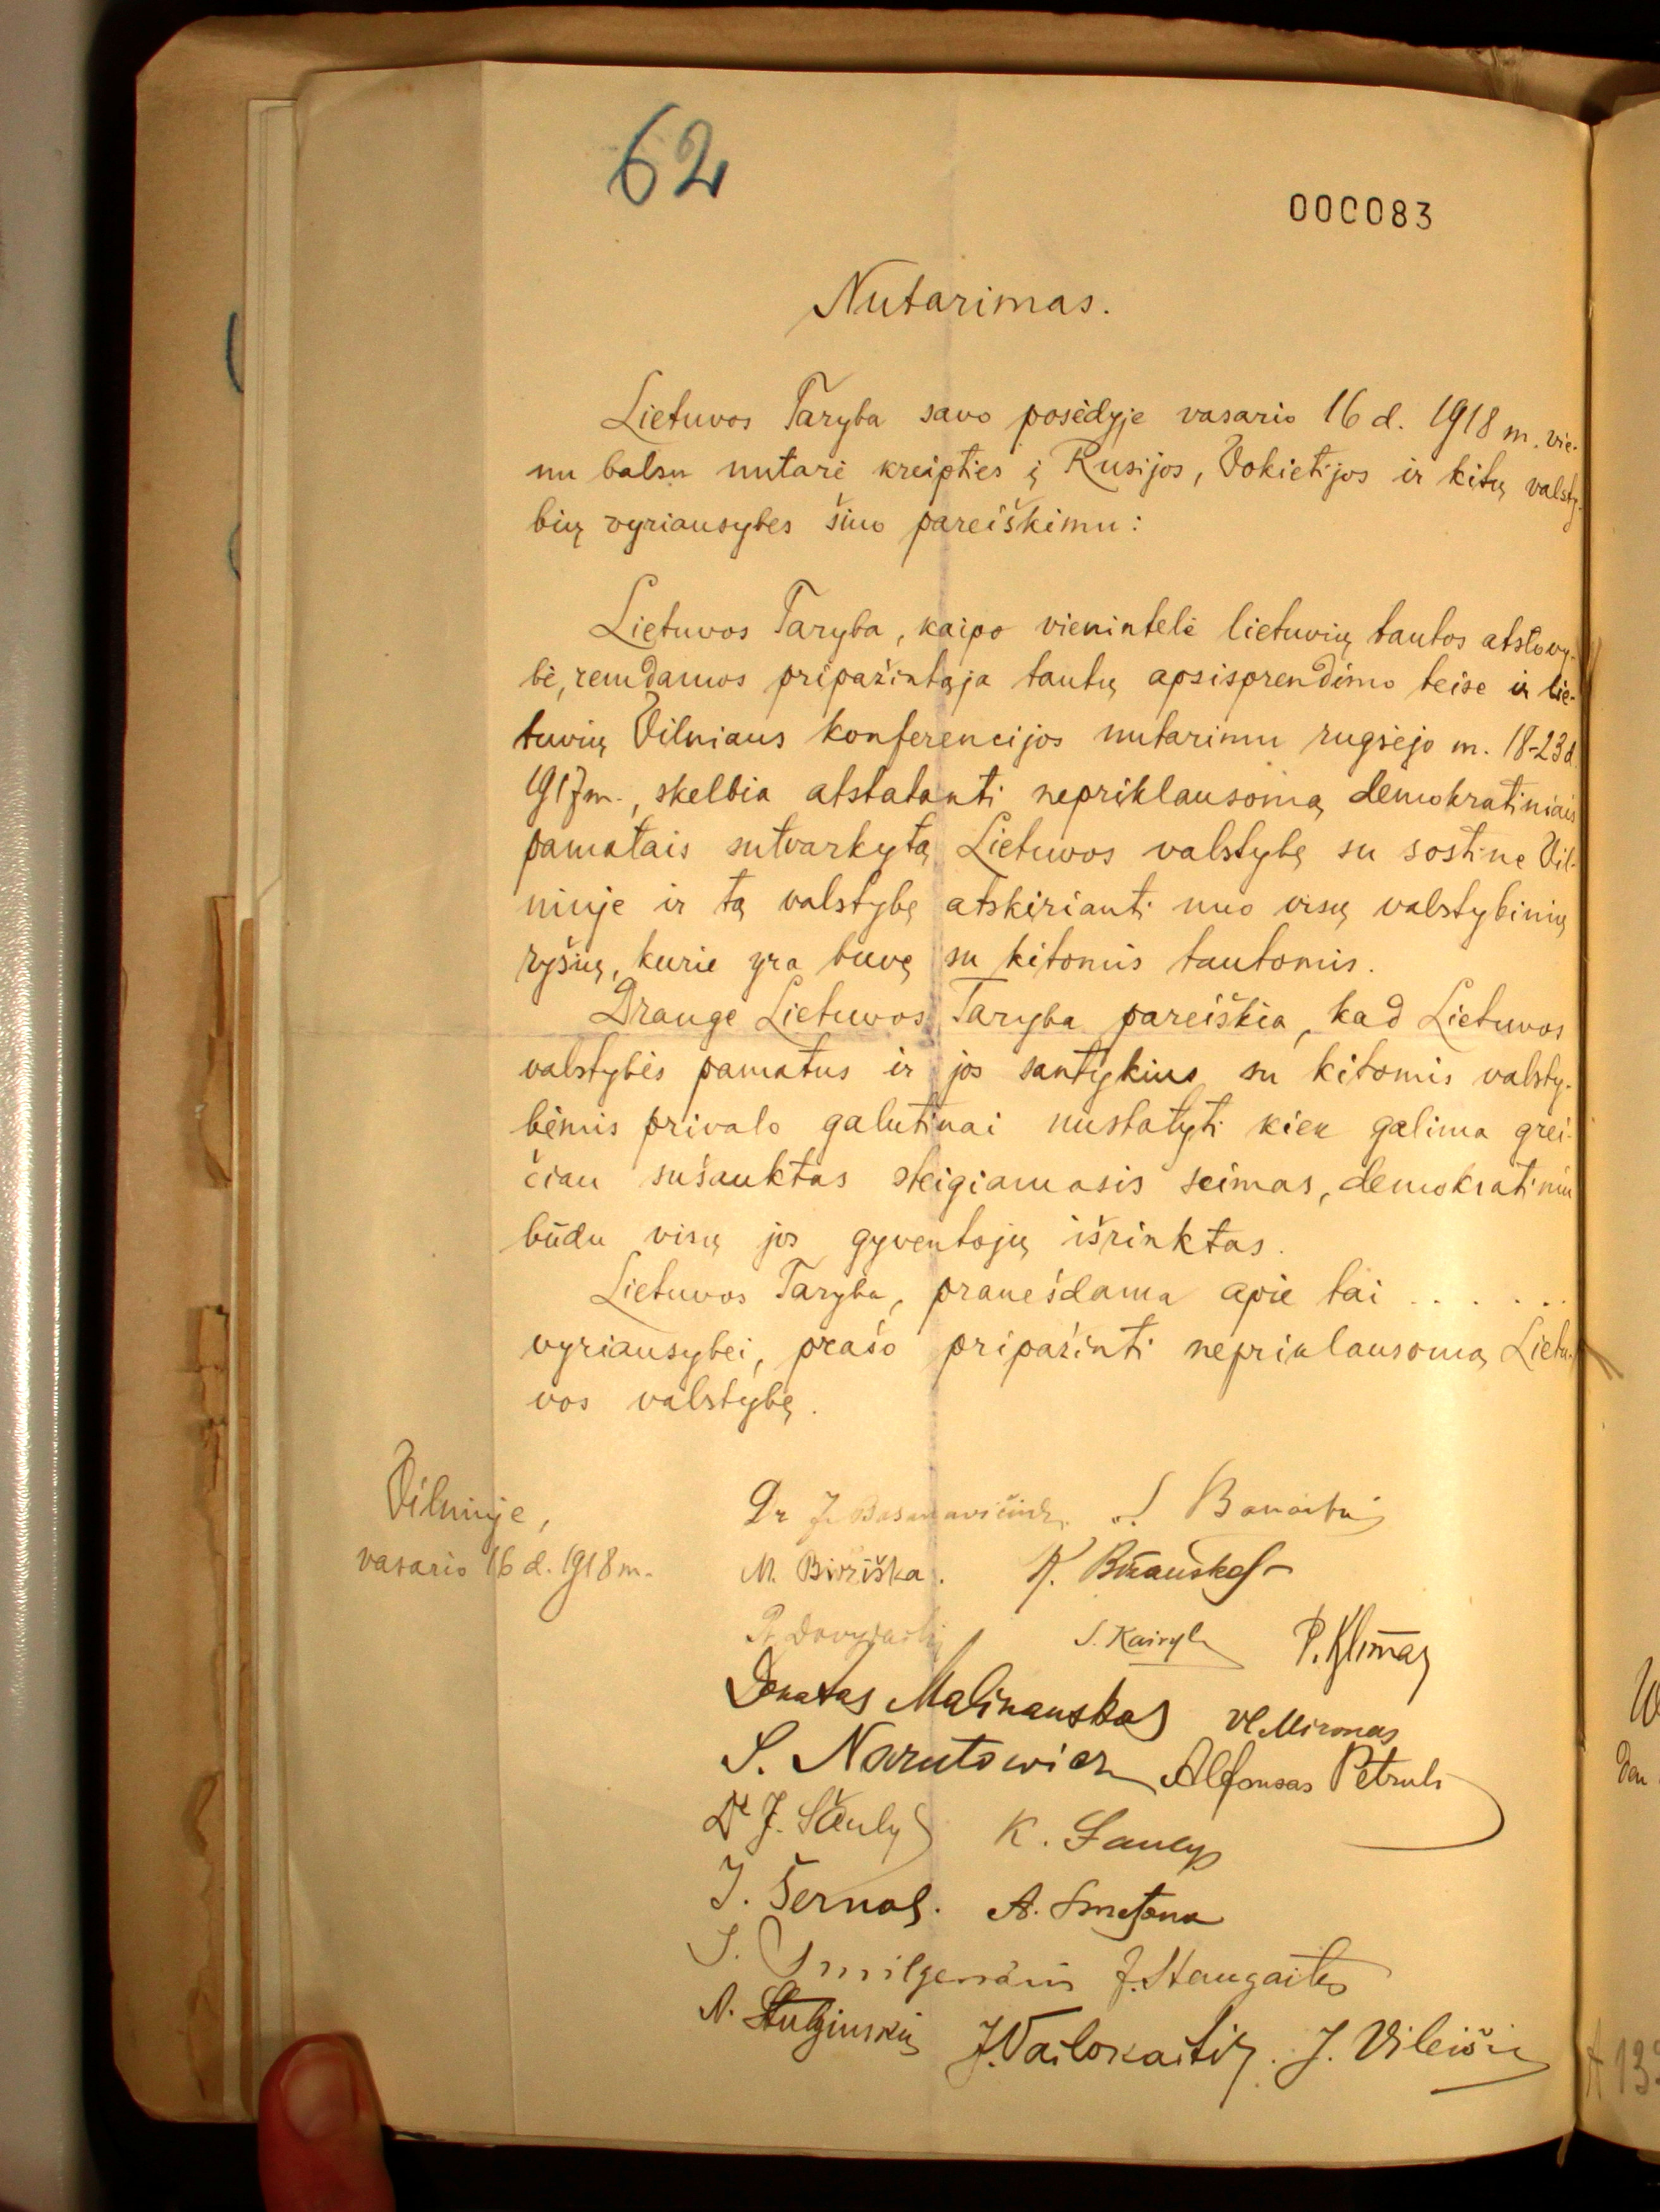 62
000083
Nutarimas.
Lietuvos Taryba savo posėdyje vasario 16 d. 1918 m. vie-
nu balsu nutarė kreipties į Rusijos, Vokietijos ir kitų valsty-
bių vyriausybes šiuo pareiškimu:
Lietuvos Taryba, kaipo vienintelė lietuvių tautos atstovy-
bė, remdamos pripažintąja tautų apsisprendimo teise ir lie-
tuvių Vilniaus konferencijos nutarimu rugsėjo m. 18-23 d.
1917 m., skelbia atstatanti nepriklausomą demokratiniais
pamatais sutvarkytą Lietuvos valstybę su sostine Vil-
niuje ir tą valstybę atskirianti nuo visų valstybinių
ryšių, kurie yra buvę su kitomis tautomis.
Drauge Lietuvos Taryba pareiškia, kad Lietuvos
valstybės pamatus ir jos santykius su kitomis valsty-
bėmis privalo galutinai nustatyti kiek galima grei-
čiau sušauktas steigiamasis seimas, demokratiniu
būdu visų jos gyventojų išrinktas.
Lietuvos Taryba, pranešdama apie tai . . . . . .
vyriausybei, prašo pripažinti nepriklausomą Lietu-
vos valstybę.
Vilniuje,
vasario 16 d. 1918 m.
Dr J. Basanavičius. S. Banaitis
M. Biržiška. K. Bizauskas
Pr. Dovydaitis S. Kairys P. Klimas
Donatas Malinauskas Vl. Mironas
S. Narutowicz Alfonsas Petrulis
Dr J. Šaulys K. Šaulys
J. Šernas. A. Smetona
J. Smilgevičius J. Staugaitis
A. Stulginskis J. Vailokaitis. J. Vileišis